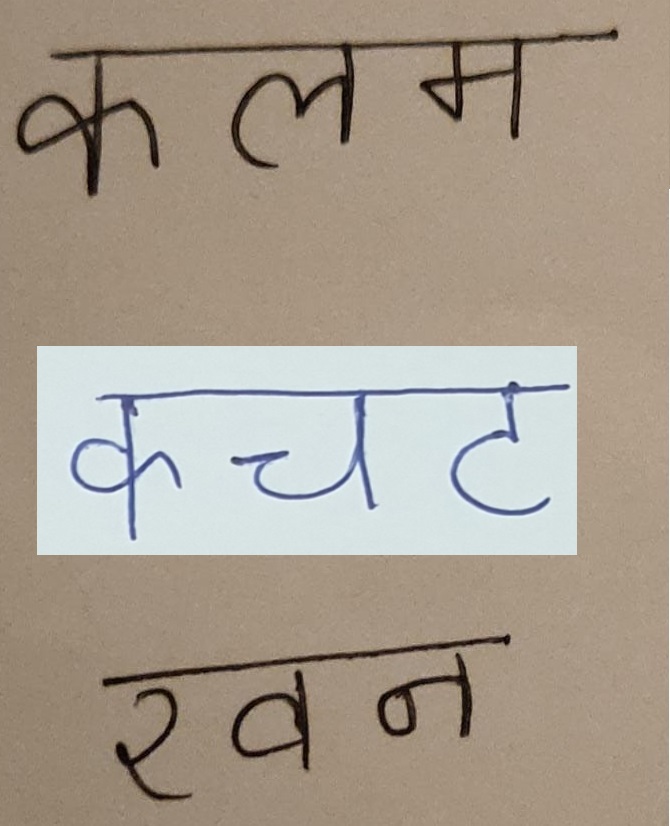 कलम
कचट
रवन